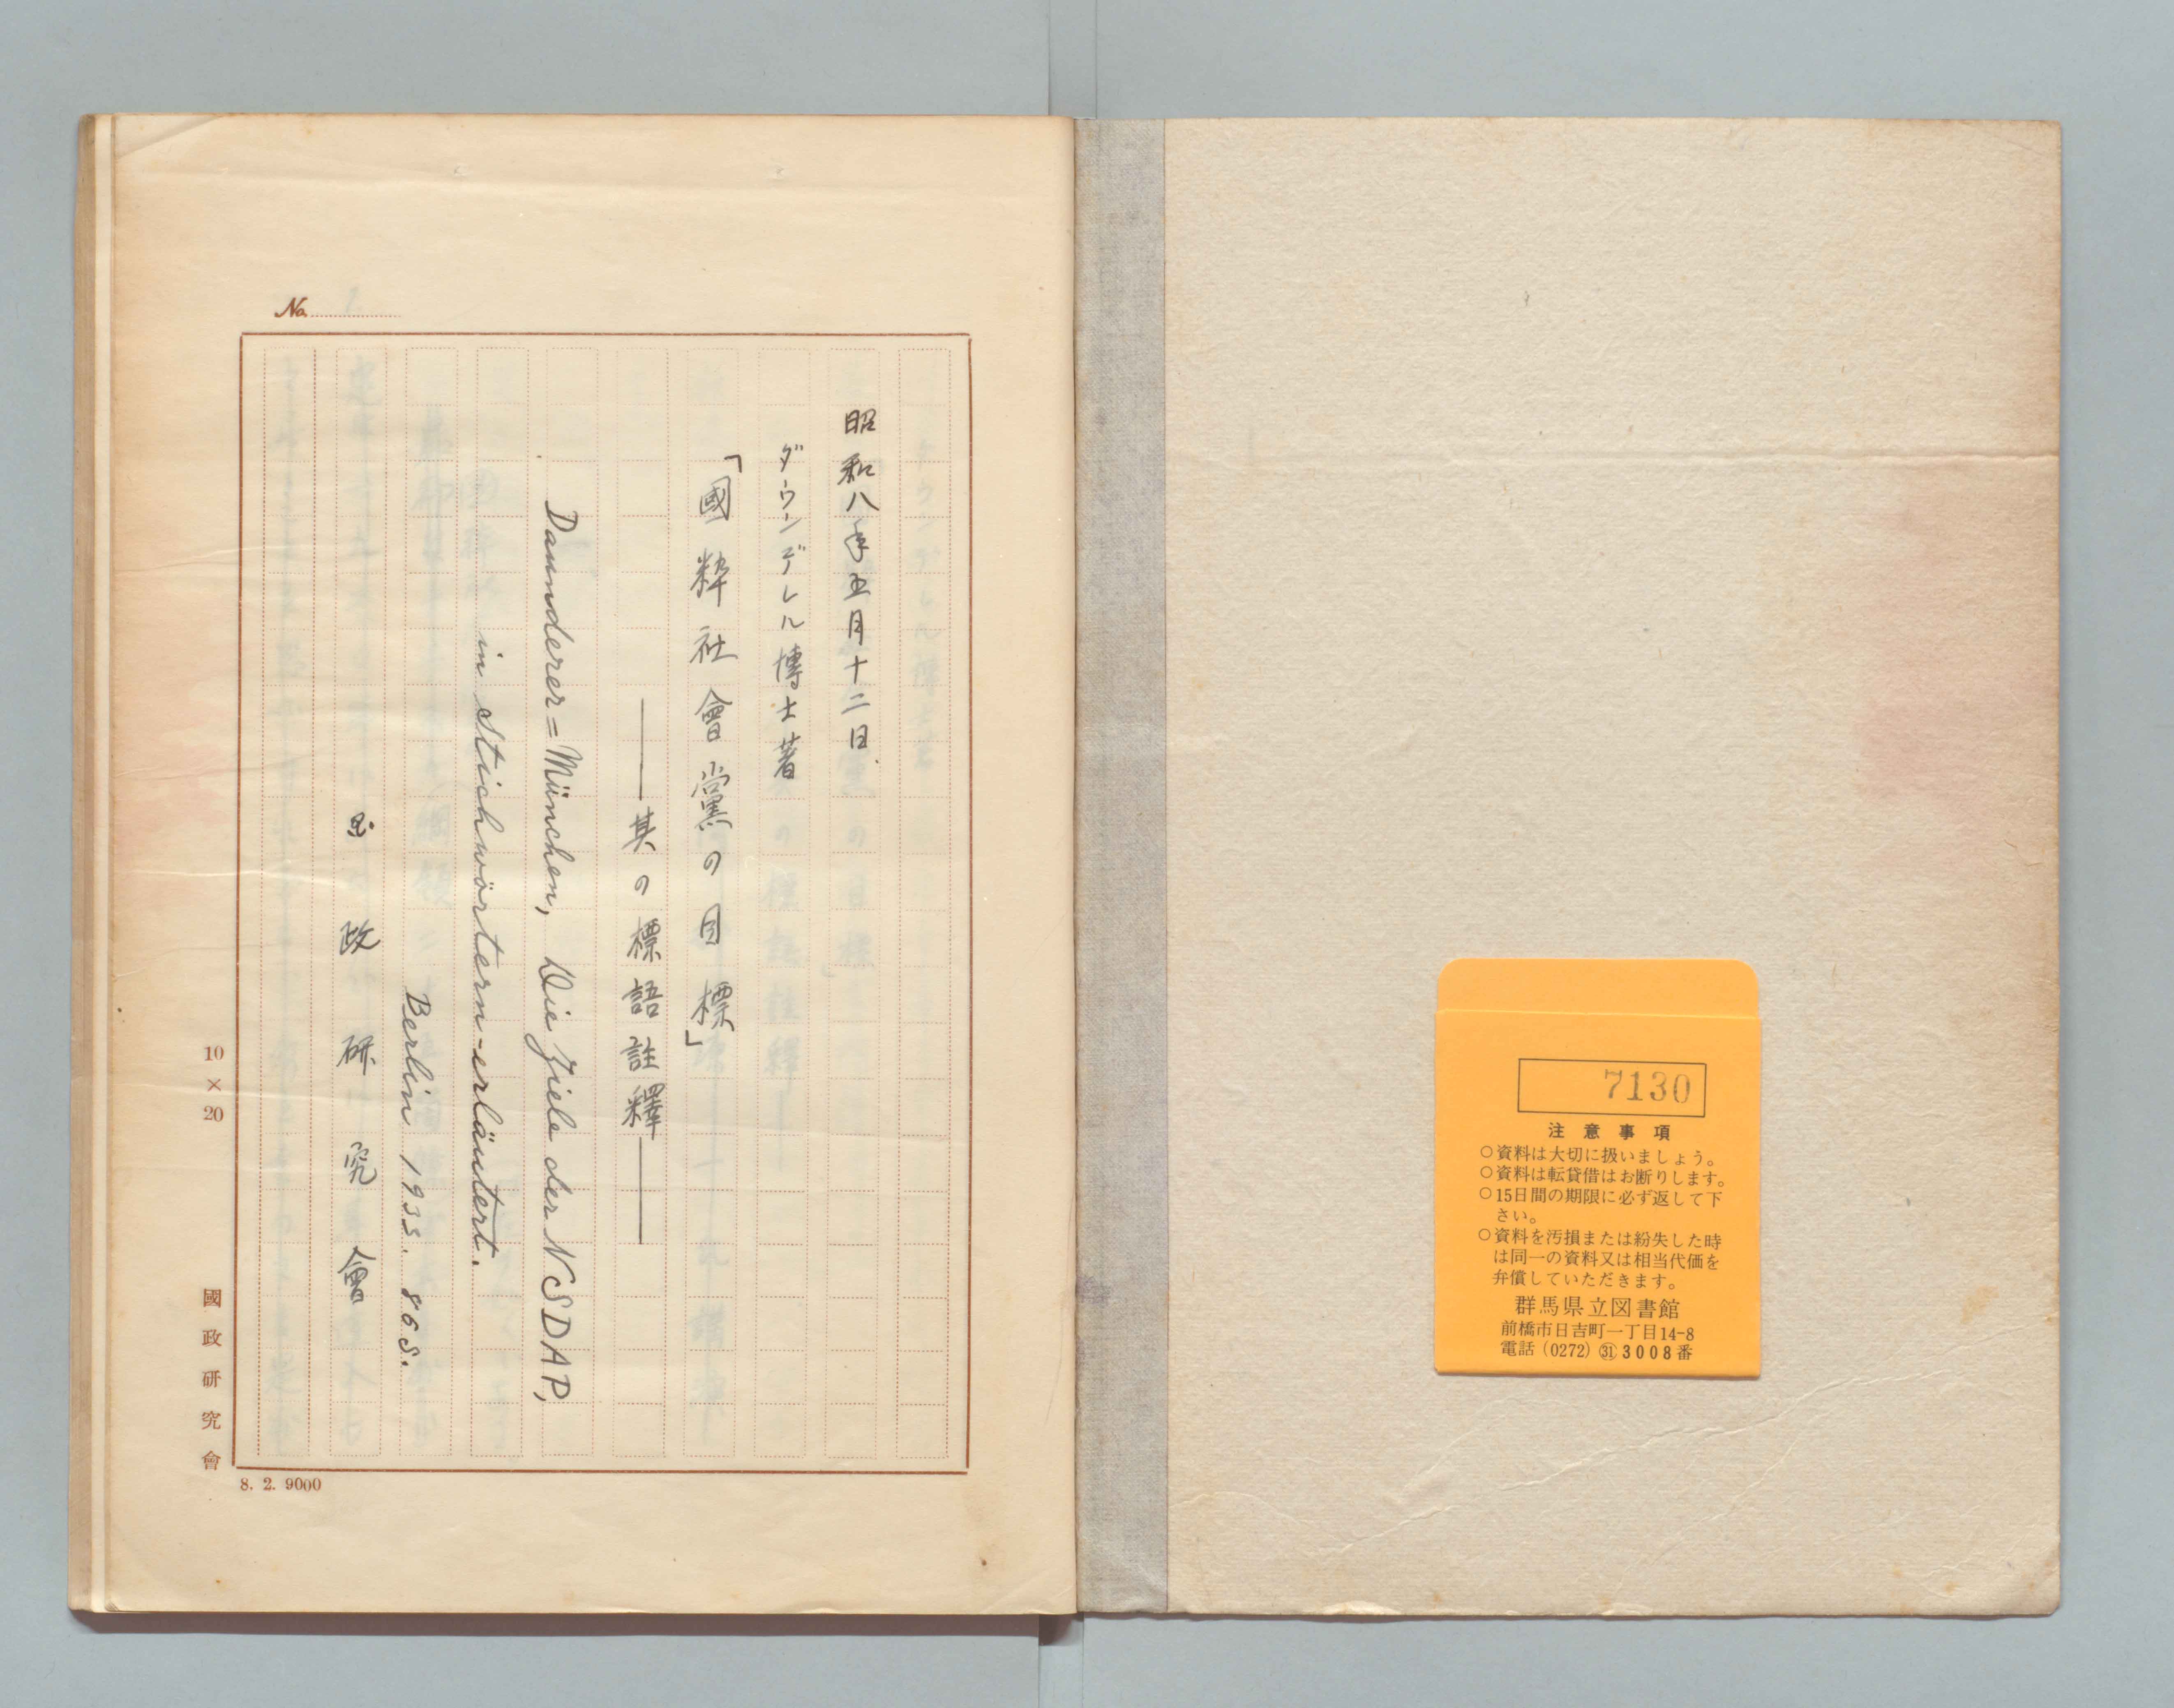 7130
注意事項
○資料は大切に扱いましょう。
○資料は転貸借はお断りします。
○15日間の期限に必ず返して下
さい。
○資料を汚損または紛失した時
は同一の資料又は相当代価を
弁償していただきます。
群馬県立図書館
前橋市日吉町一丁目14-8
電話(0272)㉛3008番
No.
昭和八年五月十二日
ダウンデレル博士著
「國粹社會黨の目標」
――其の標語註釋――
Daunderer=München, Die Ziele der NSDAP,
in Stichwörtern erläutert.
Berlin 1933. 86S.
国政研究會
10×20
國政研究會
8. 2. 9000